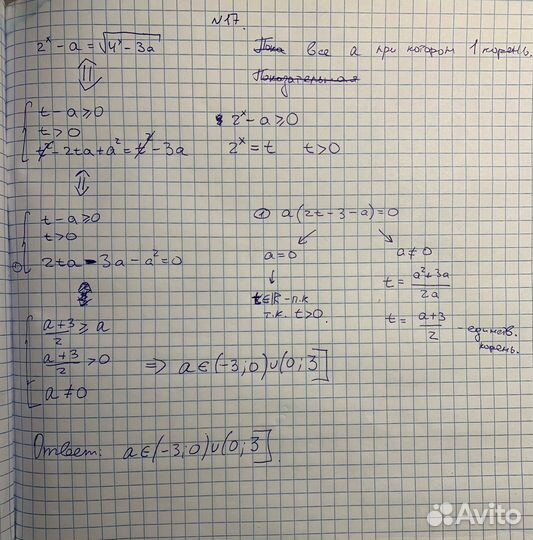 №17.
2ˣ - a = √(4ˣ - 3a)
все a при котором 1 корень.
Показательная
{ t - a ≥ 0
t > 0
t² - 2ta + a² = t² - 3a
2ˣ - a ≥ 0
2ˣ = t   t > 0
{ t - a ≥ 0
t > 0
① 2ta - 3a - a² = 0
① a(2t - 3 - a) = 0
a = 0
t ∈ ℝ - п.к
т.к. t > 0.
a ≠ 0
t = (a² + 3a)/2a
t = (a + 3)/2 - единств. корень.
{ (a + 3)/2 ≥ a
(a + 3)/2 > 0
a ≠ 0
⇒ a ∈ (-3; 0) ∪ (0; 3]
Ответ: a ∈ (-3; 0) ∪ (0; 3].
Avito